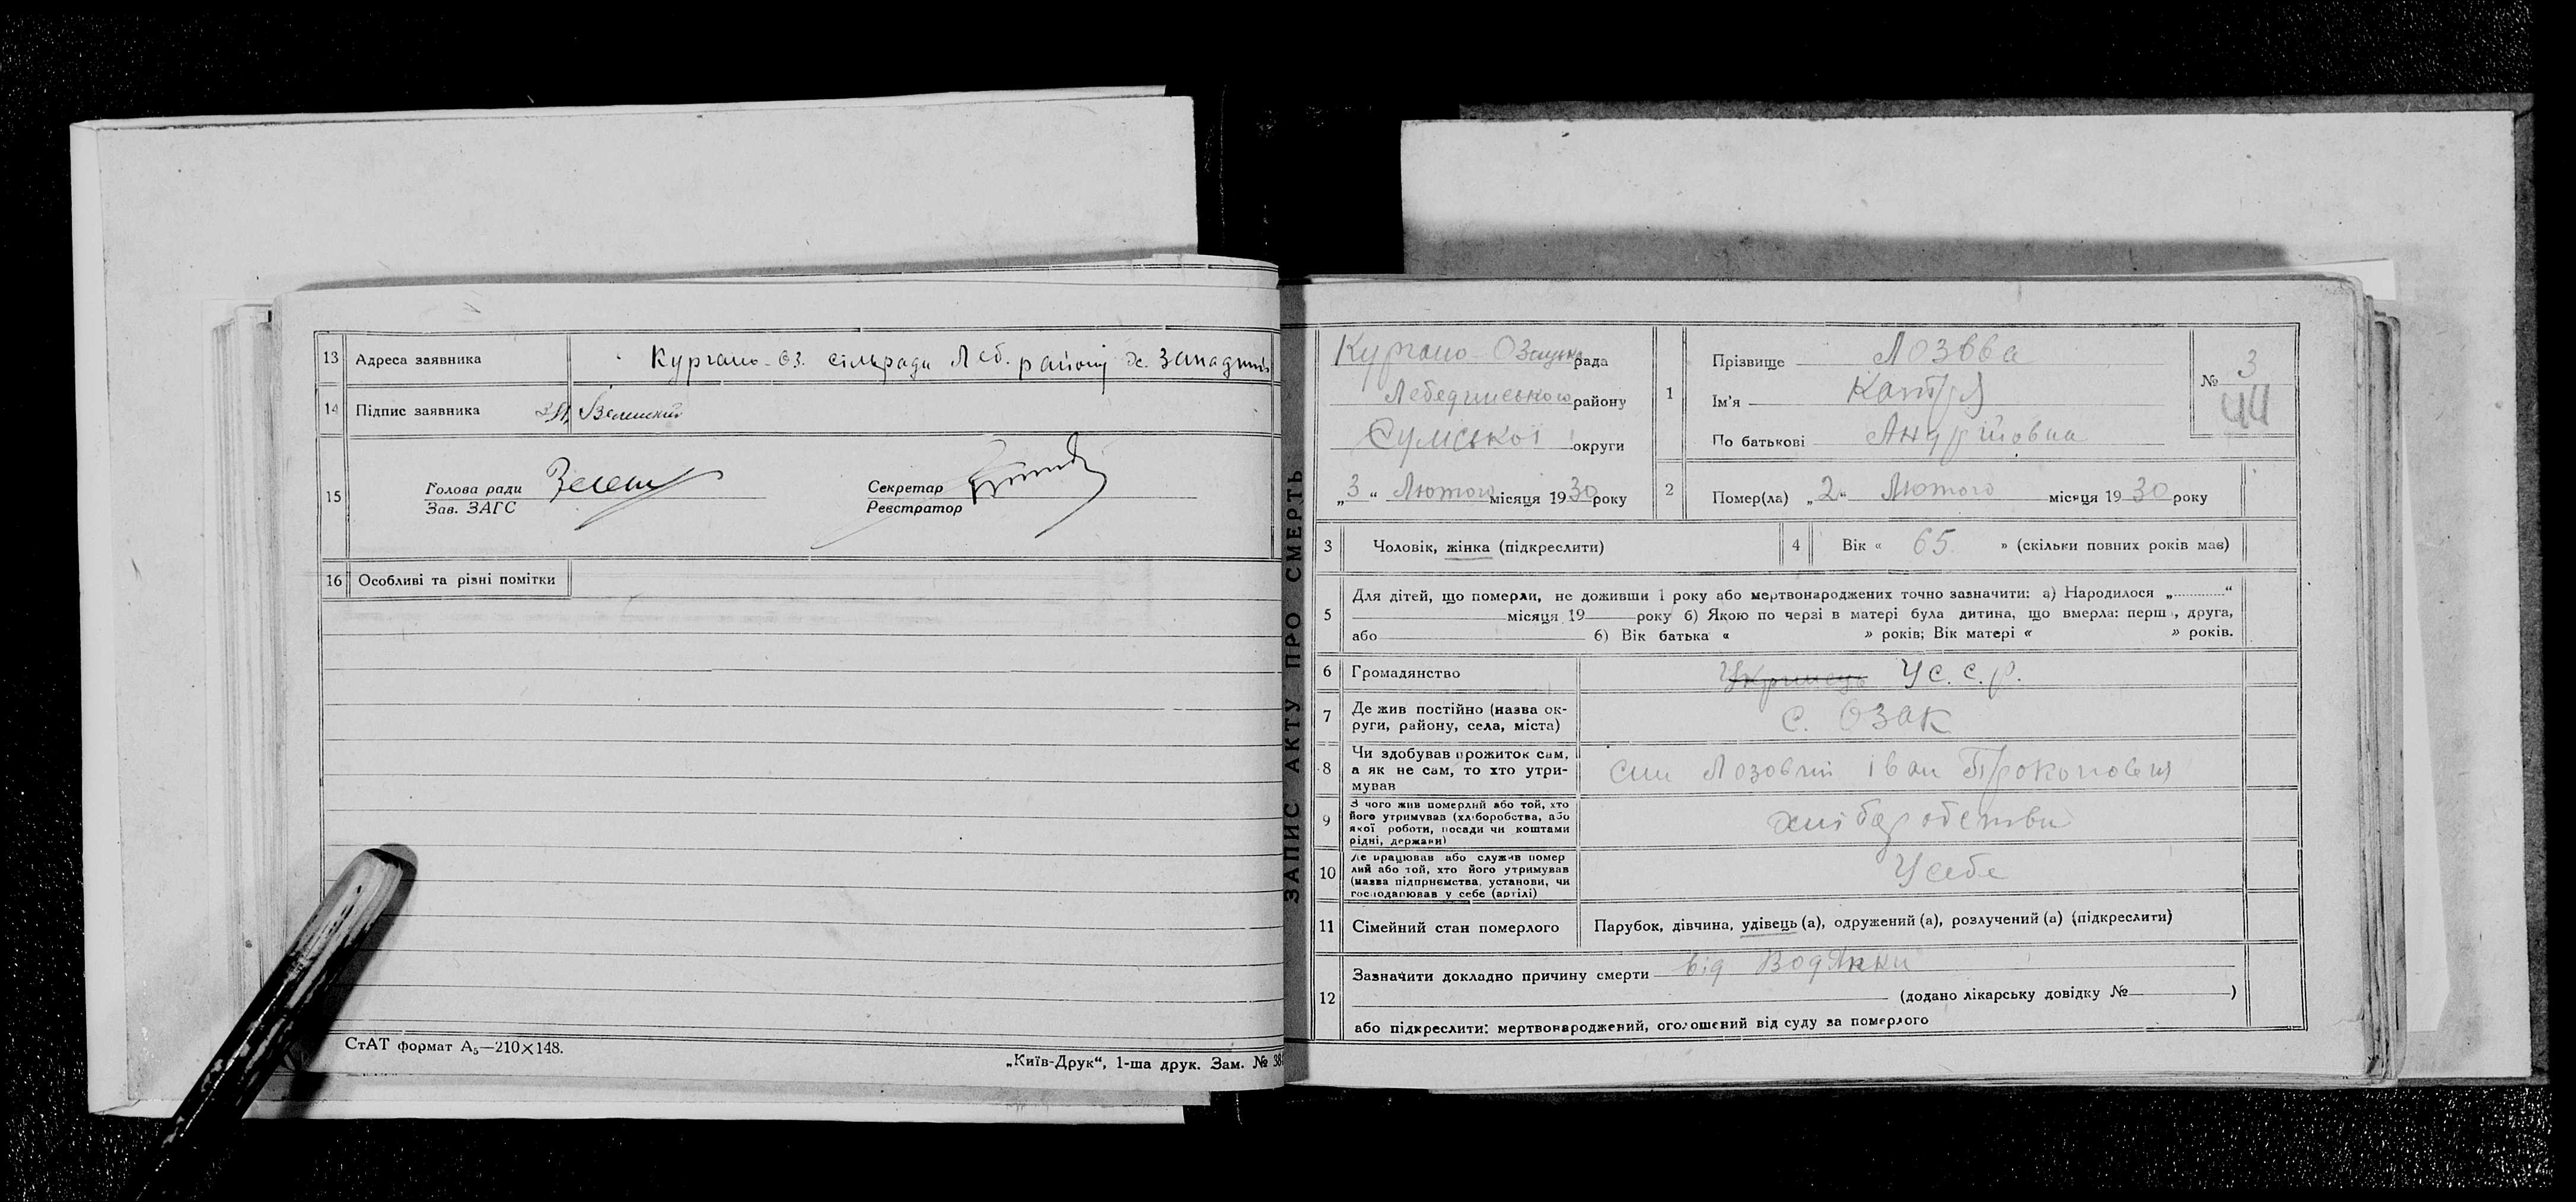 13 Адреса заявника Кургано-Оз. сільради Леб. району х. Западний
14 Підпис заявника
15
Голова ради
Зав. ЗАГС
Секретар
Реєстратор
16 Особливі та різні помітки
СтАТ формат А₅—210×148.
„Київ-Друк“, 1-ша друк. Зам. №
ЗАПИС АКТУ ПРО СМЕРТЬ
Кургано-Озацька рада
Лебединського району
Сумської округи
„3“ Лютого місяця 1930 року
1 Прізвище Лозова
Ім'я Катря
По батькові Андріївна
№ 3
44
2 Помер(ла) „2“ Лютого місяця 1930 року
3 Чоловік, жінка (підкреслити)
4 Вік « 65 » (скільки повних років має)
5 Для дітей, що померли, не доживши 1 року або мертвонароджених точно зазначити: а) Народилося „............“
місяця 19 року б) Якою по черзі в матері була дитина, що вмерла: перш , друга,
або б) Вік батька « » років; Вік матері « » років.
6 Громадянство Українець У с. с. р.
7 Де жив постійно (назва ок-
руги, району, села, міста) с. Озак
8 Чи здобував прожиток сам,
а як не сам, то хто утри-
мував син Лозовий іван Прокопович
9 З чого жив померлий або той, хто
його утримував (хліборобства, або
якої роботи, посади чи коштами
рідні, держави) хліборобства
10 Де працював або служив помер
лий або той, хто його утримував
(назва підприємства, установи, чи
господарював у себе (артілі) У себе
11 Сімейний стан померлого Парубок, дівчина, удівець (а), одружений (а), розлучений (а) (підкреслити)
12 Зазначити докладно причину смерти від Водянки
(додано лікарську довідку № )
або підкреслити: мертвонароджений, оголошений від суду за померлого